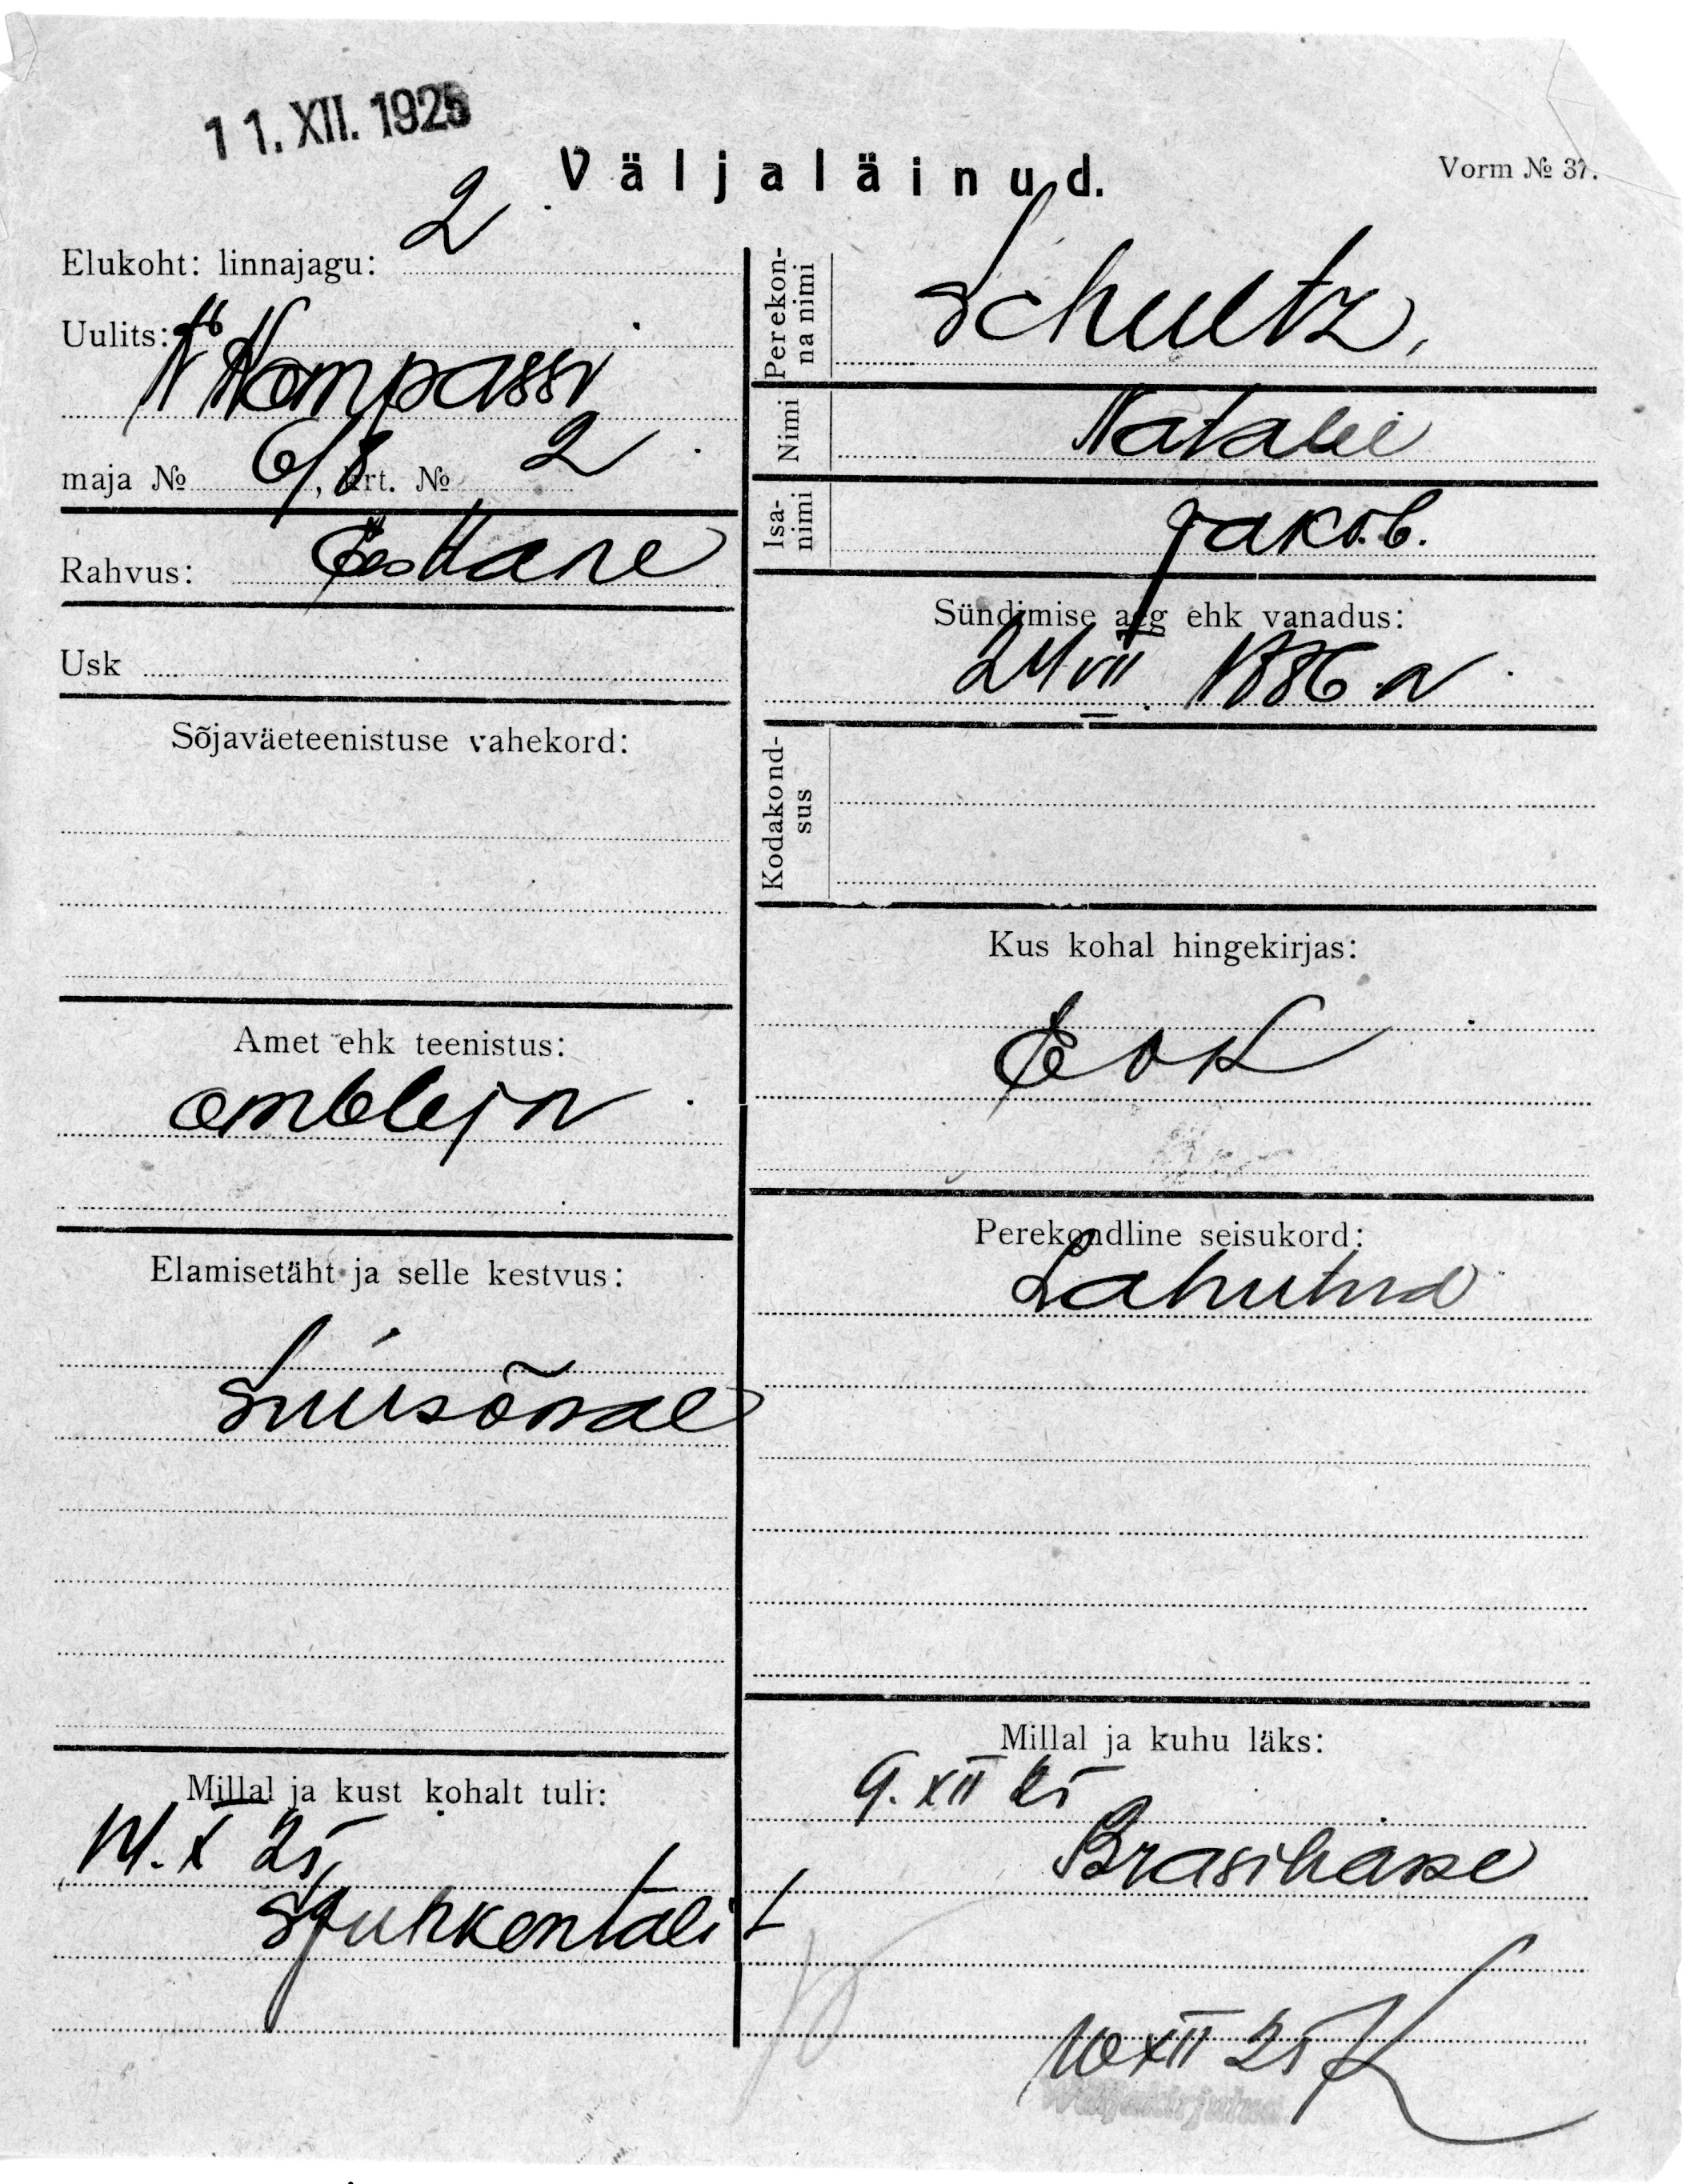 11. XII. 1925
Väljaläinud.
Vorm № 37.
Elukoht: linnajagu: 2
Uulits:
Kompassi
maja № 6/8, krt. № 2
Rahvus: Eestlane
Usk
Sõjaväeteenistuse vahekord:
Amet ehk teenistus:
Ombleja
Elamisetäht ja selle kestvus:
Suusõnal
Millal ja kust kohalt tuli:
14. X 25
Perekonna nimi Schultz,
Nimi Natalie
Isanimi Jakob.
Sündimise aeg ehk vanadus:
24 VII 1886 a
Kodakondsus
Kus kohal hingekirjas:
Perekondline seisukord:
Lahutud
Millal ja kuhu läks:
9. XII 25
Brasiliasse
10 XII 25
Väljakirjutud